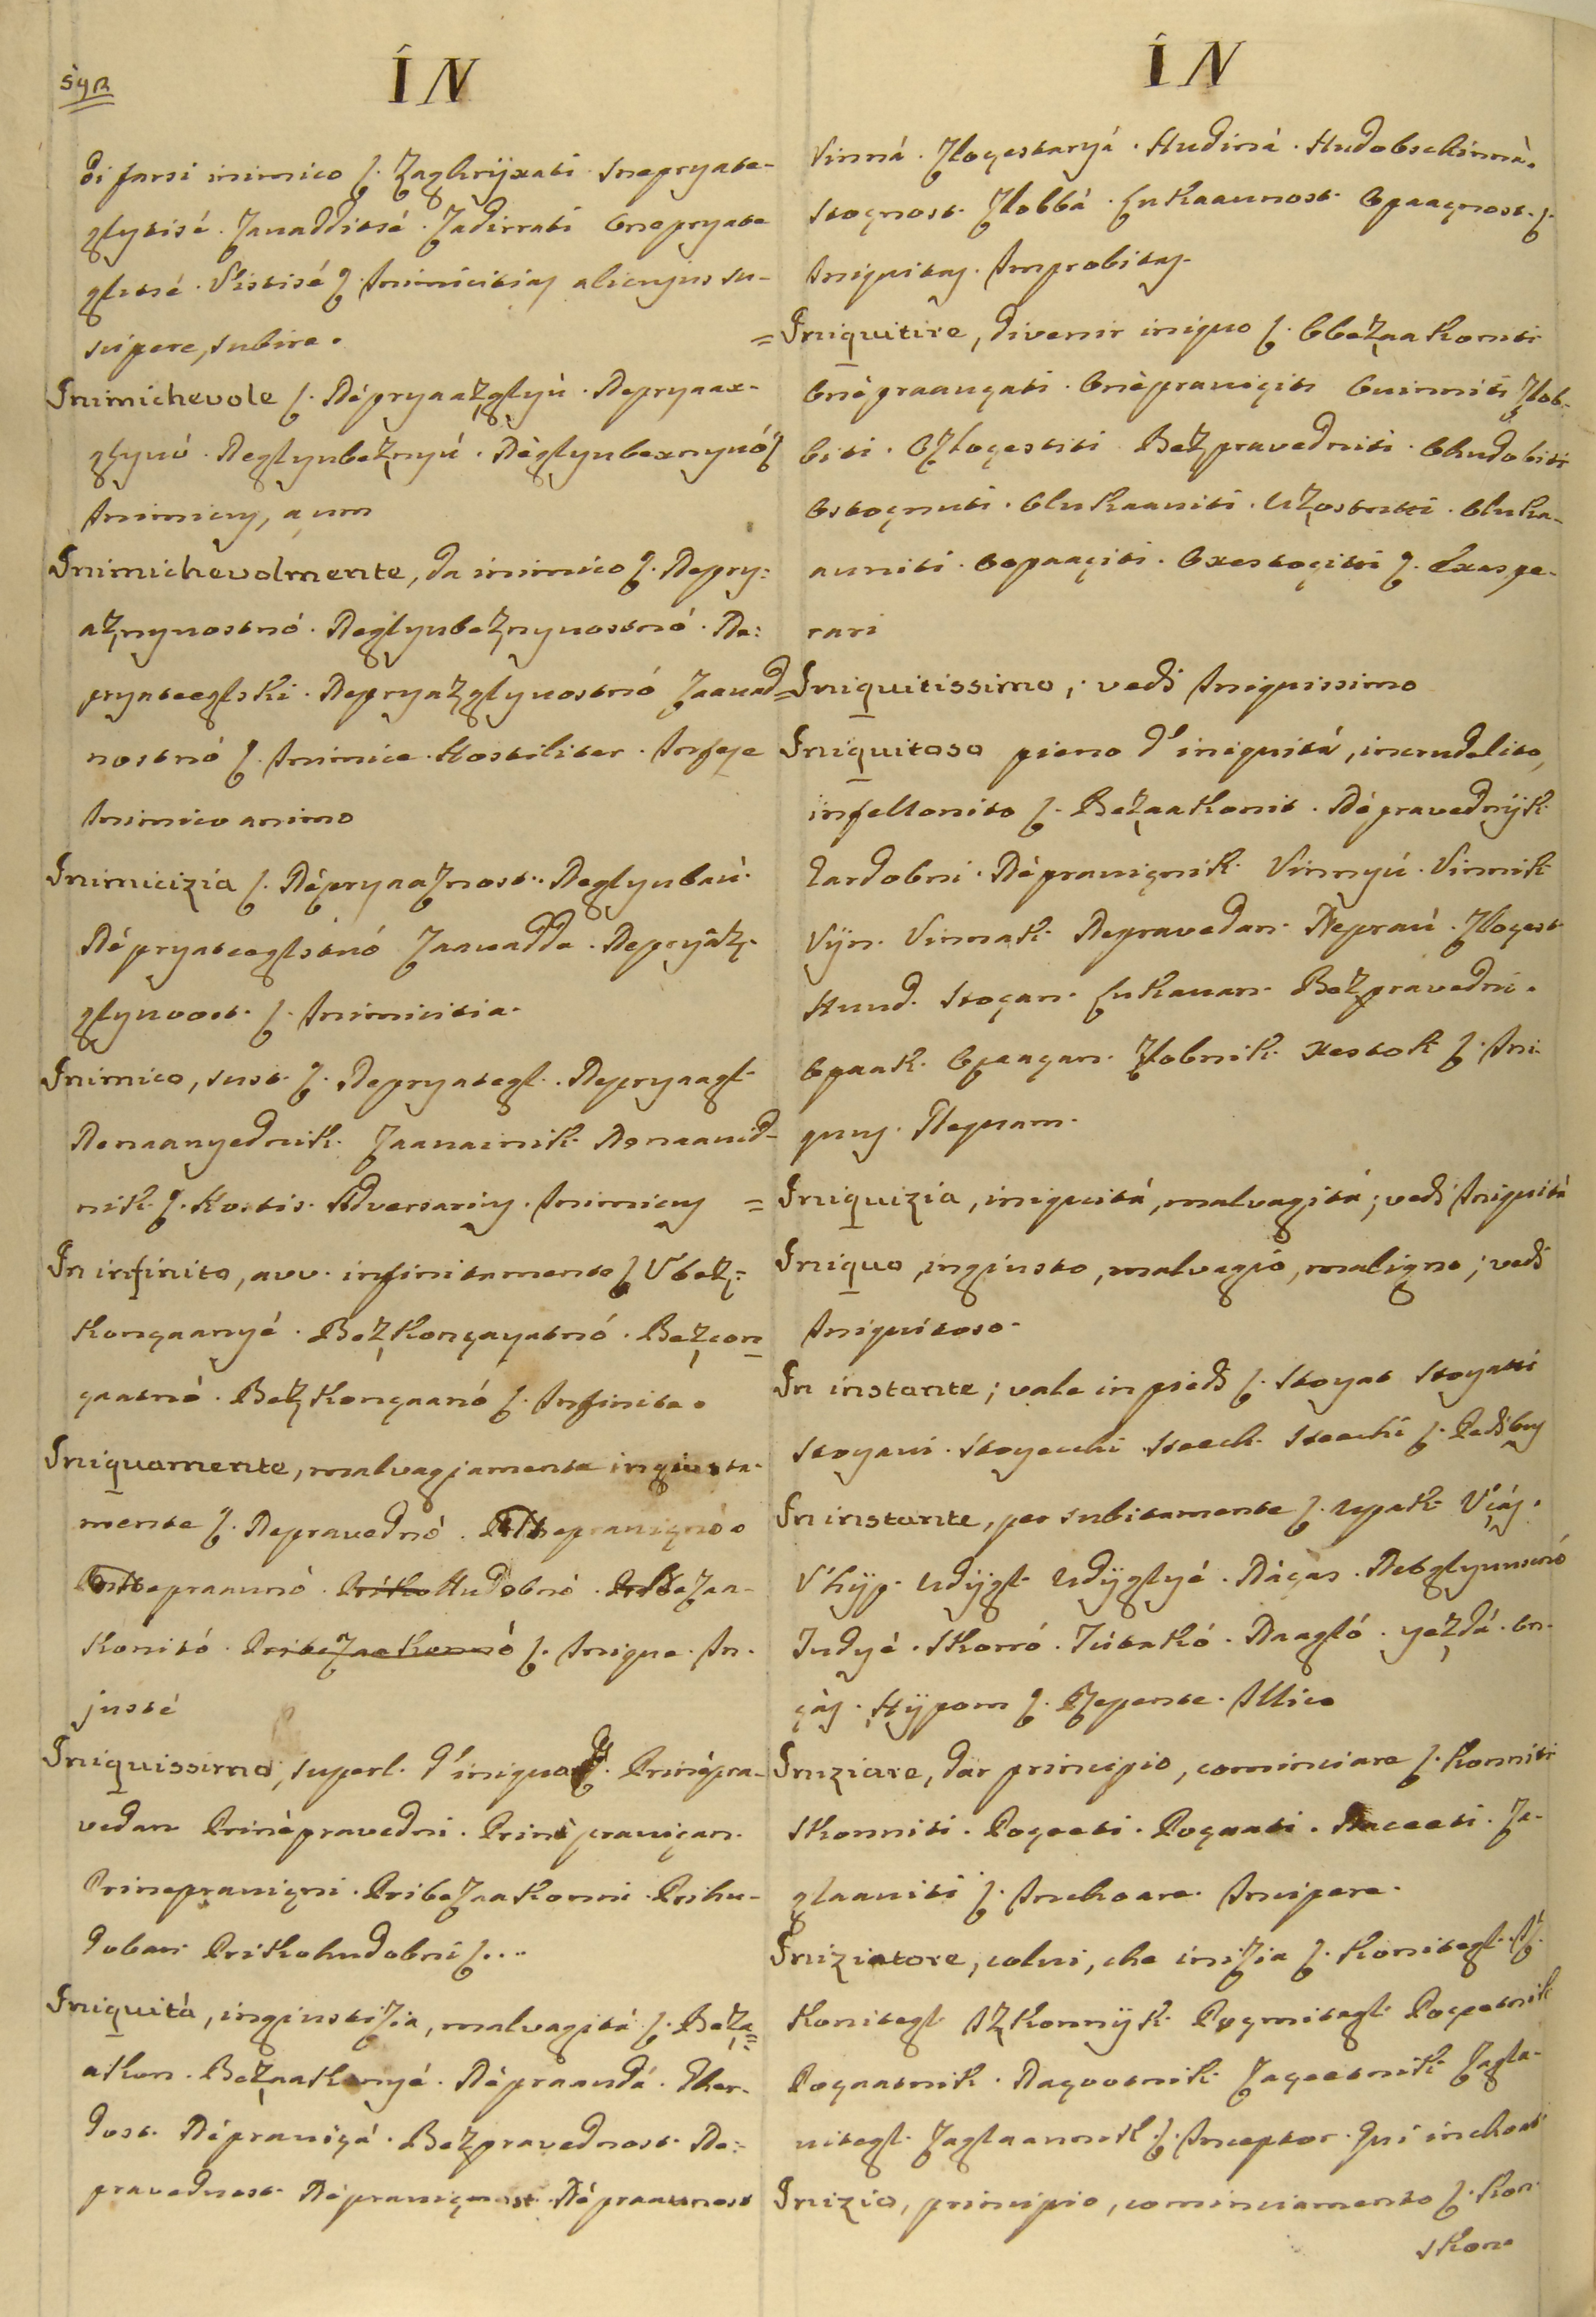 592
ÍN
di farsi inimico ʃ. Zaghrÿxati Snepryate-
glytisé. Zavadditsé. Zadirrati Onepryate
glitsé. Sístisé ʃ. Inimicitias alicujus su-
scipere, subire.
Inimichevole ʃ. Népryaaz̧glyú. Nepryaax-
glyuó. Neglyubez̧nyú. Néglyubexnyuó ʃ
Inimicus, a, um
Inimichevolmente, da inimico ʃ. Nepry=
az̧nyuostnó. Neglyubez̧nyuostnó. Ne=
pryateeglski. Nepryaz̧glyuostnó Zaavad=
nostnó ʃ. Inimice. Hostiliter. Infeste
Inimico animo
Inimicizia ʃ. Népryaaznost. Neglyubaú.
Népryateeglstuó Zaavadde. Nepryâz̧-
glyuvost. ʃ. Inimicitia.
Inimico, sust. ʃ. Nepryategl. Nepryaagl
Nenaanyednik. Zaavainik. Nenaavid-
nik ʃ. Hostis. Adversarius. Inimicus
In infinito, avv. infinitamente ʃ Ubez̧=
konçaanyé. Bez̧konçayatnó. Bez̧con=
çaatnó. Bez̧konçaanó ʃ. Infinite.
Iniquamente, malvagiamente ingiusta-
mente ʃ. Nepravednó. Nepraviçnó.
Nepraaunó. Hudobnó. Bezaa-
konitó. Pribezaakonnó ʃ. Inique. In-
justé
Iniquissimo, superl. d'iniquo ʃ. Prinépra-
vedan Prinépravedni. Prinépraviçan.
Prinepraviçni. Pribezaakonni. Prihu-
doban Prikohudobni ʃ...
Iniquità, ingiustizia, malvagitá ʃ. Bez̧a=
akon. Bez̧aakonyé. Népraaudá.
dost. Népraviçá. Bez̧pravednost. Ne=
pravednost Népraviçnost. Népraaunost
ÍN
Vinná. Zloçestaryá. Hudiná. Hudobschinná.
Stoçnost. Zlobbá. Lukaaunost. Opaaçnost. ʃ.
Iniquitas. Improbitas.
= Iniquitire, divenir iniquo ʃ. Obez̧aakoniti
Onépraauçati. Onépraviçiti Ouinniti Zlob-
biti. Ozloçestiti Bez̧pravedniti. Ohudobiti
Ostoçnuti. Olukaaviti. Uz̧ostritti. Oluka-
auniti. Oopaaçiti. Oxestoçitti ʃ. Exaspe-
rari
= Iniquitissimo, vedi Iniquissimo
Iniquitoso pieno d'iniquitá, incrudelito,
infellonito ʃ. Bez̧aakonit. Népravednÿk
Zardobni. Népraviçnik Vinnyú. Vinnik
Vÿn. Vinnak Nepravedan. Nepraú. Zloçest
Huud. Stoçan. Lukavan. Bez̧pravedni.
Opaak. Opaaçan. Zlobnik. xestok ʃ. Ini-
quus. Nequam.
= Iniquizia, iniquitá, malvagitá; vedi Iniquitá
Iniquo, ingiusto, malvagio, maligno; vedi
Iniquitoso.
In instante; vale in piedi ʃ. Stoyat Stoyatti
Stoyavi. Stoyecchi Steech. Steechi ʃ. Pedibus
In instante, per subitamente ʃ. Upak Uças.
V'hÿp. Udÿgl. Udÿglyé. Náças. Nebglyunnó
Tudyé. Skorró. Tútakó. Naagló. yez̧dá. On-
ças. Hÿpom ʃ. Repente. Illico
Iniziare, dar principio, cominciare ʃ. Konniti
Skonniti. Poçeeti. Poçaati. Naceeti. Za-
glaaviti ʃ. Inchoare. Incipere.
Iniziatore, colui, che inizia ʃ. Konitegl. Is-
Konitegl Iz̧konnÿk. Poçmitegl. Poçetnik
Poçaatnik. Naçootnik Zaçeetnik Zagla-
vitegl. Zaglaavnik. ʃ. Inceptor. Qui inchoat
Inizio, principio, cominciamento ʃ. Kon.
Skon.